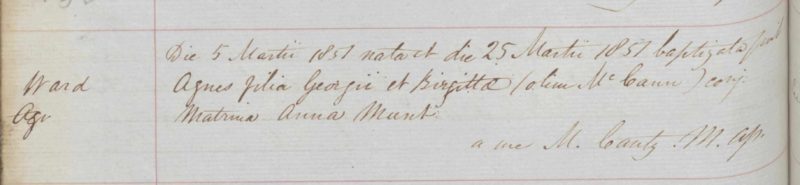 Die 5 Martii 1851 nata et die 25 Martii 1851 baptizata fuit
Ward
Agnes filia Georgii et Birgittæ (olim McCann) conj.
Ag
Matrina Anna Munt
a me M. Canty M. Ap.